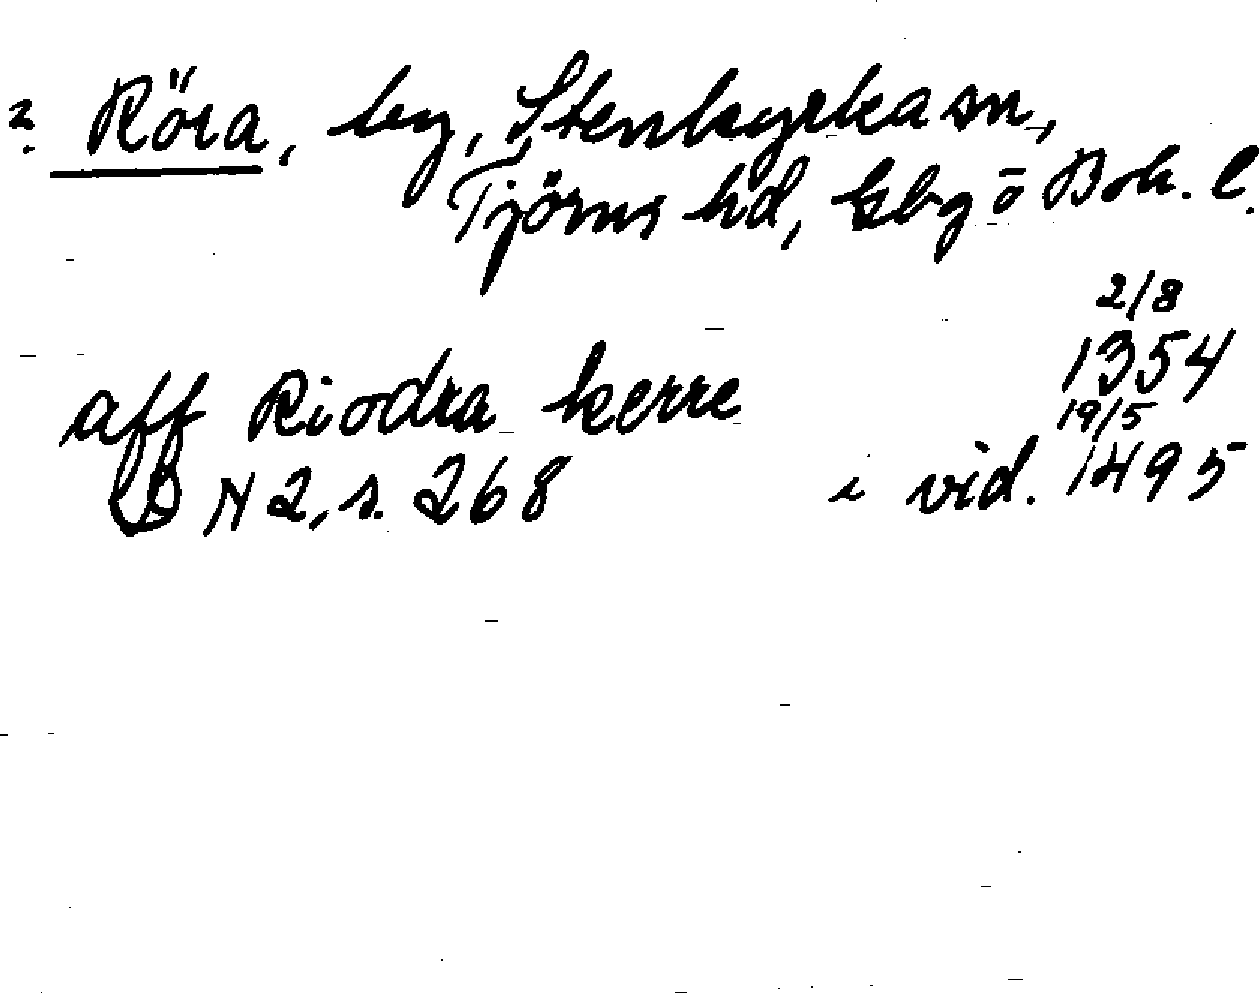 ? Röra, by, Stenkyrka sn,
Tjörns hd, Gbg o Boh. l.
2/8
aff Riodra kerre 1354
19/5
DN 2, s. 268 i vid. 1495